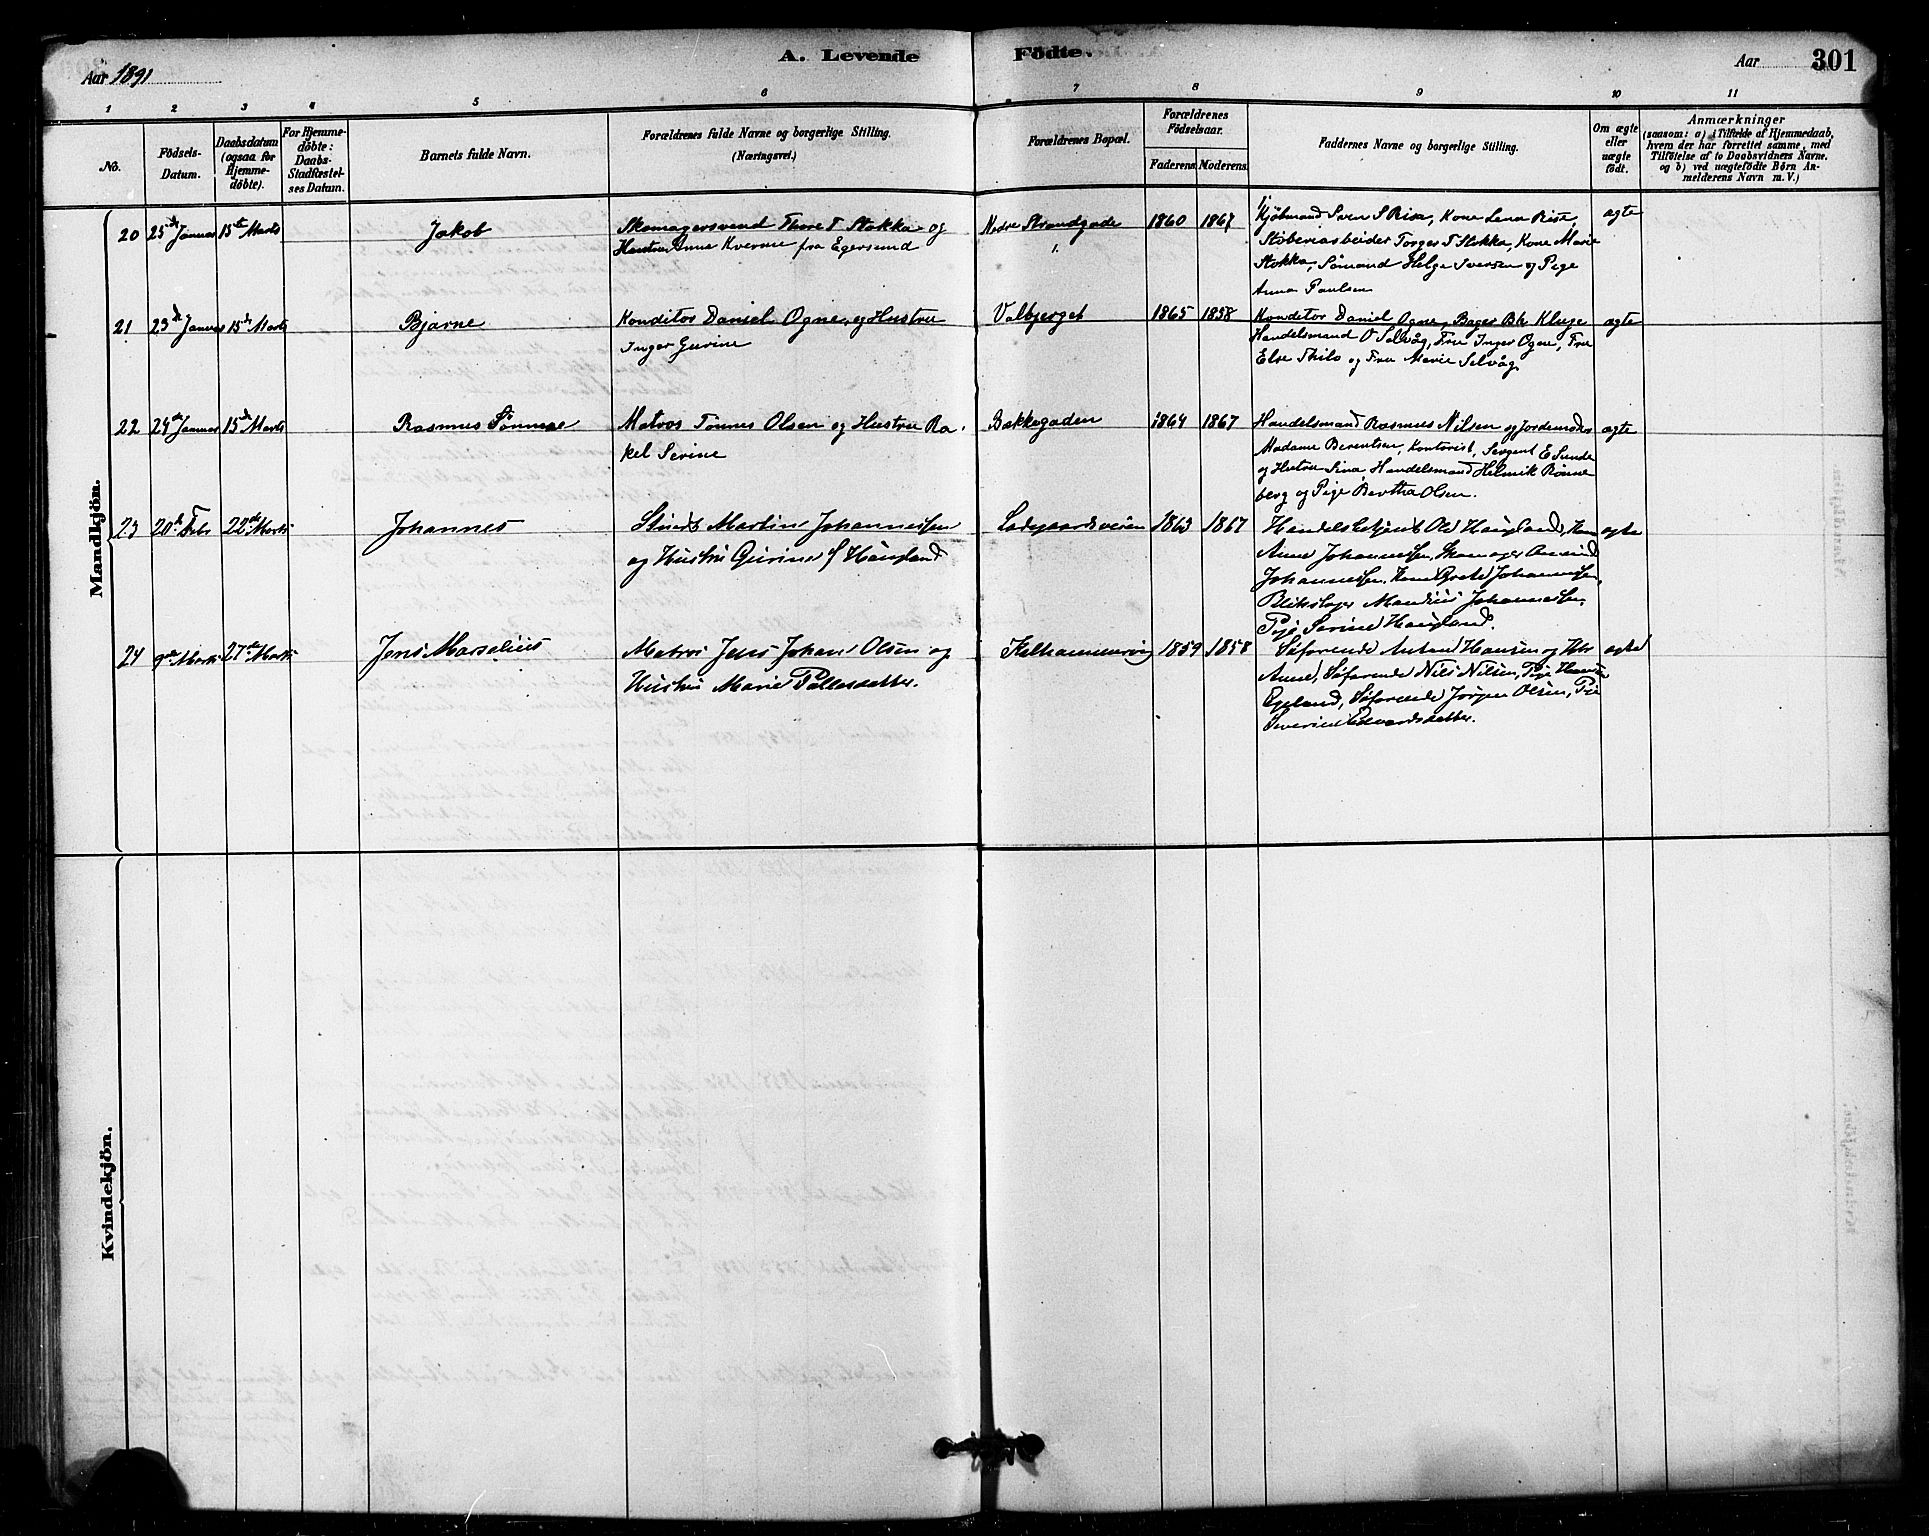 A. Levende Födte.
301
Aar 1891
Aar
1 2 3 4 5 6 7 8 9 10 11
No.
Födsels-Datum.
Daabsdatum (ogsaa for Hjemme-döbte).
For Hjemme-döbte: Daabs-Stadfæstel-ses Datum.
Barnets fulde Navn.
Forældrenes fulde Navne og borgerlige Stilling. (Næringsvei.)
Forældrenes Bopæl.
Forældrenes Födselsaar.
Faderens. Moderens.
Faddernes Navne og borgerlige Stilling.
Om ægte eller uægte födt.
Anmærkninger
(saasom: a) i Tilfælde af Hjemmedaab,
hvem der har forrettet samme, med
Tilföielse af to Daabsvidners Navne.
og b) ved uægtefödte Börn An-
melderens Navn m. V.)
Mandkjön.
20 25de Januar 15de Marts Jakob
Skomagersvend Thore T Stokka og
Hustru Anna Kverme fra Egersund
Nedre Strandgade 1860 1867
Kjöbmand Sven S Risa, Kone Lena Risa
Støberiarbeider Torger T Stokka, Kone Marie
Stokka, Sömand Helge Iversen og Pige
Anna Paulsen
ægte
21 23de Januar 15de Marts Bjarne
Konditor Daniel Ogne og Hustru
Inger Gurine
Valbjerget 1865 1858
Konditor Daniel Ogne, Bager Kluge
Handelsmand O Selvåg, Fru Inger Ogne, Fru
Else Thilo og Fru Marie Selvåg
ægte
22 24de Januar 15de Marts Rasmus
Matros Tönnes Olsen og Hustru Ra-
kel Serine
Bakkegaden 1864 1867
Handelsmand Rasmus Nilsen og Jordemoder
Madame Berentsen, Kontorist, Sergent E Sunde
og Hustru Sina Handelsmand Helmik Rönne
berg og Pige Bertha Olsen.
ægte
23 20de Febr 22de Marts Johannes
Stuert Martin Johannessen
og Hustru Gurine f Haugland
Ladegaardsveien 1863 1867
Ole Haugland, Kone
Anne Johannessen, Skomager
Johannessen, Kone Grete Johannessen,
Blikslager Johannessen,
Pige Serine Haugland.
ægte
24 9de Marts 27de Marts Jens Marselius
Matros Jens Johan Olsen og
Hustru Marie Pallesdatter.
Kelhammervig 1859 1858
Söfarende Antand Hansen og Htr
Anne, Söfarende Nils Nilsen, Pige
Egeland, Söfarende Jörgen Olsen, Pige
Severine Edvardsdatter.
ægte
Kvindekjön.